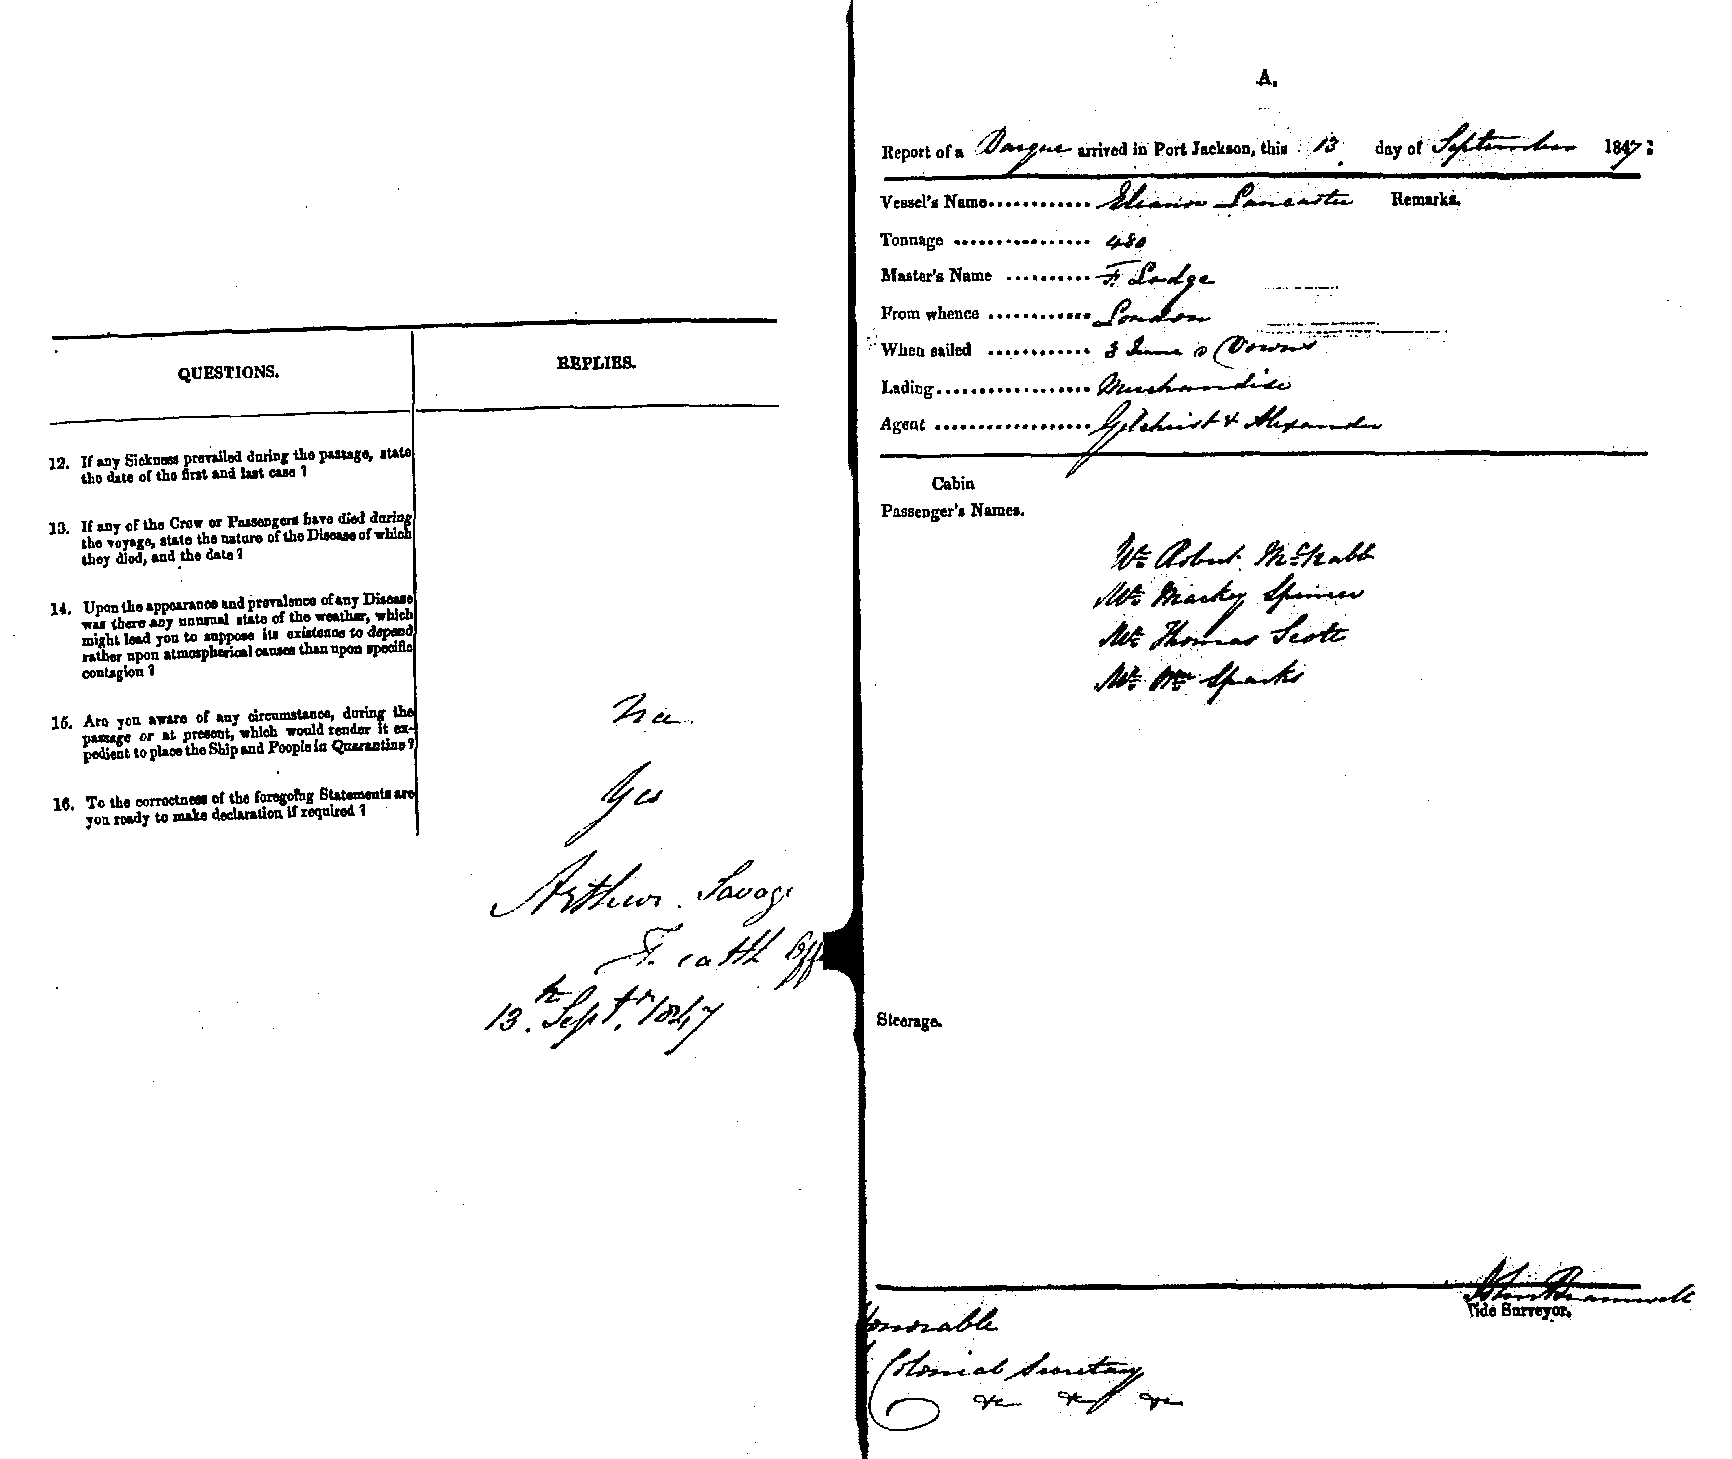 QUESTIONS.
REPLIES.
12. If any Sickness prevailed during the passage, state
the date of the first and last case ?
13. If any of the Crew or Passengers have died during
the voyage, state the nature of the Disease of which
they died, and the date ?
14. Upon the appearance and prevalence of any Disease
was there any unusual state of the weather, which
might lead you to suppose its existence to depend
rather upon atmospherical causes than upon specific
contagion ?
15. Are you aware of any circumstance, during the
passage or at present, which would render it ex-
pedient to place the Ship and People in Quarantine ?
No
16. To the correctness of the foregoing Statements are
you ready to make declaration if required ?
Yes
Arthur Savage
Health Off
13th Septr. 1847
A.
Report of a Barque arrived in Port Jackson, this 13 day of September 1847:
Vessel's Name............ Eleanor Lancaster Remarks.
Tonnage ................ 480
Master's Name .......... F. Lodge
From whence ............ London
When sailed ............ 3 June Downs
Lading.................. Merchandise
Agent .................. Gilchrist & Alexander
Cabin
Passenger's Names.
Mr. Robert
Mr. Spencer
Mr. Thomas Scott
Mr. Wm Sparks
Steerage.
John Bramwell
Tide Surveyor.
Honorable
Colonial Secretary
&c &c &c